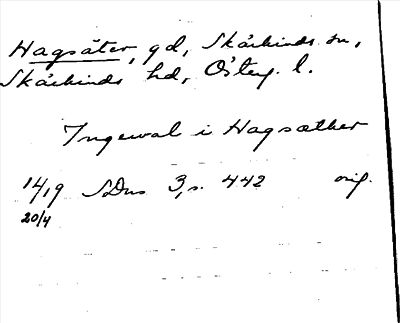 Hagsäter, gd, Skärkinds sn,
Skärkinds hd, Österg. l.
Ingewal i Hagsæther
14/19 SDns 3, s. 442 orig.
20/4